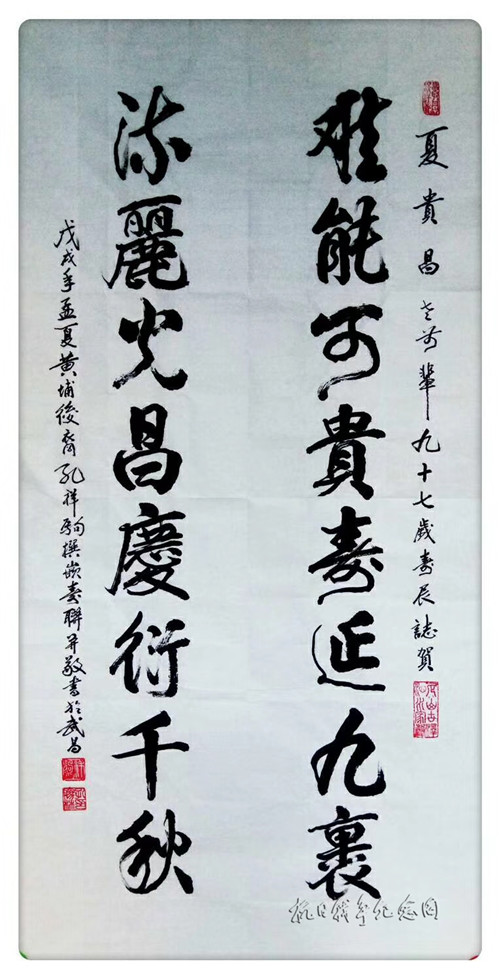 夏貴昌老前輩九十七歲壽辰誌賀
難能可貴壽延九裹
流麗光昌慶衍千秋
戊戌年孟夏黃埔後裔孔祥駒撰嵌壽聯并敬書於武昌
抗日战争纪念网